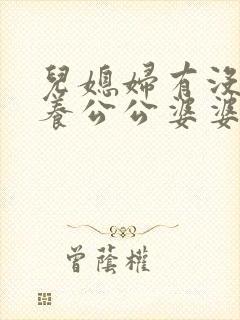 兒媳婦有沒
養公公婆婆
曾蔭權